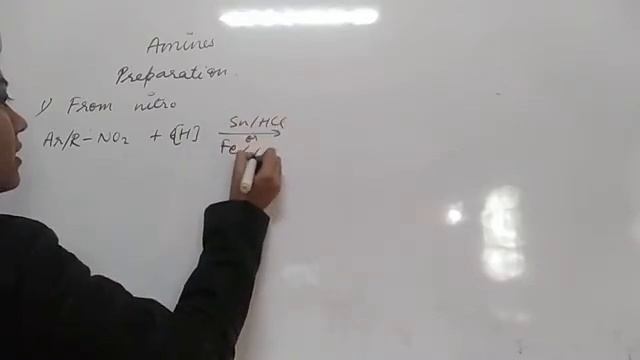 Amines
Preparation.
1) From nitro
Ar/R-NO2 + [H] Sn/HCl
or
Fe/